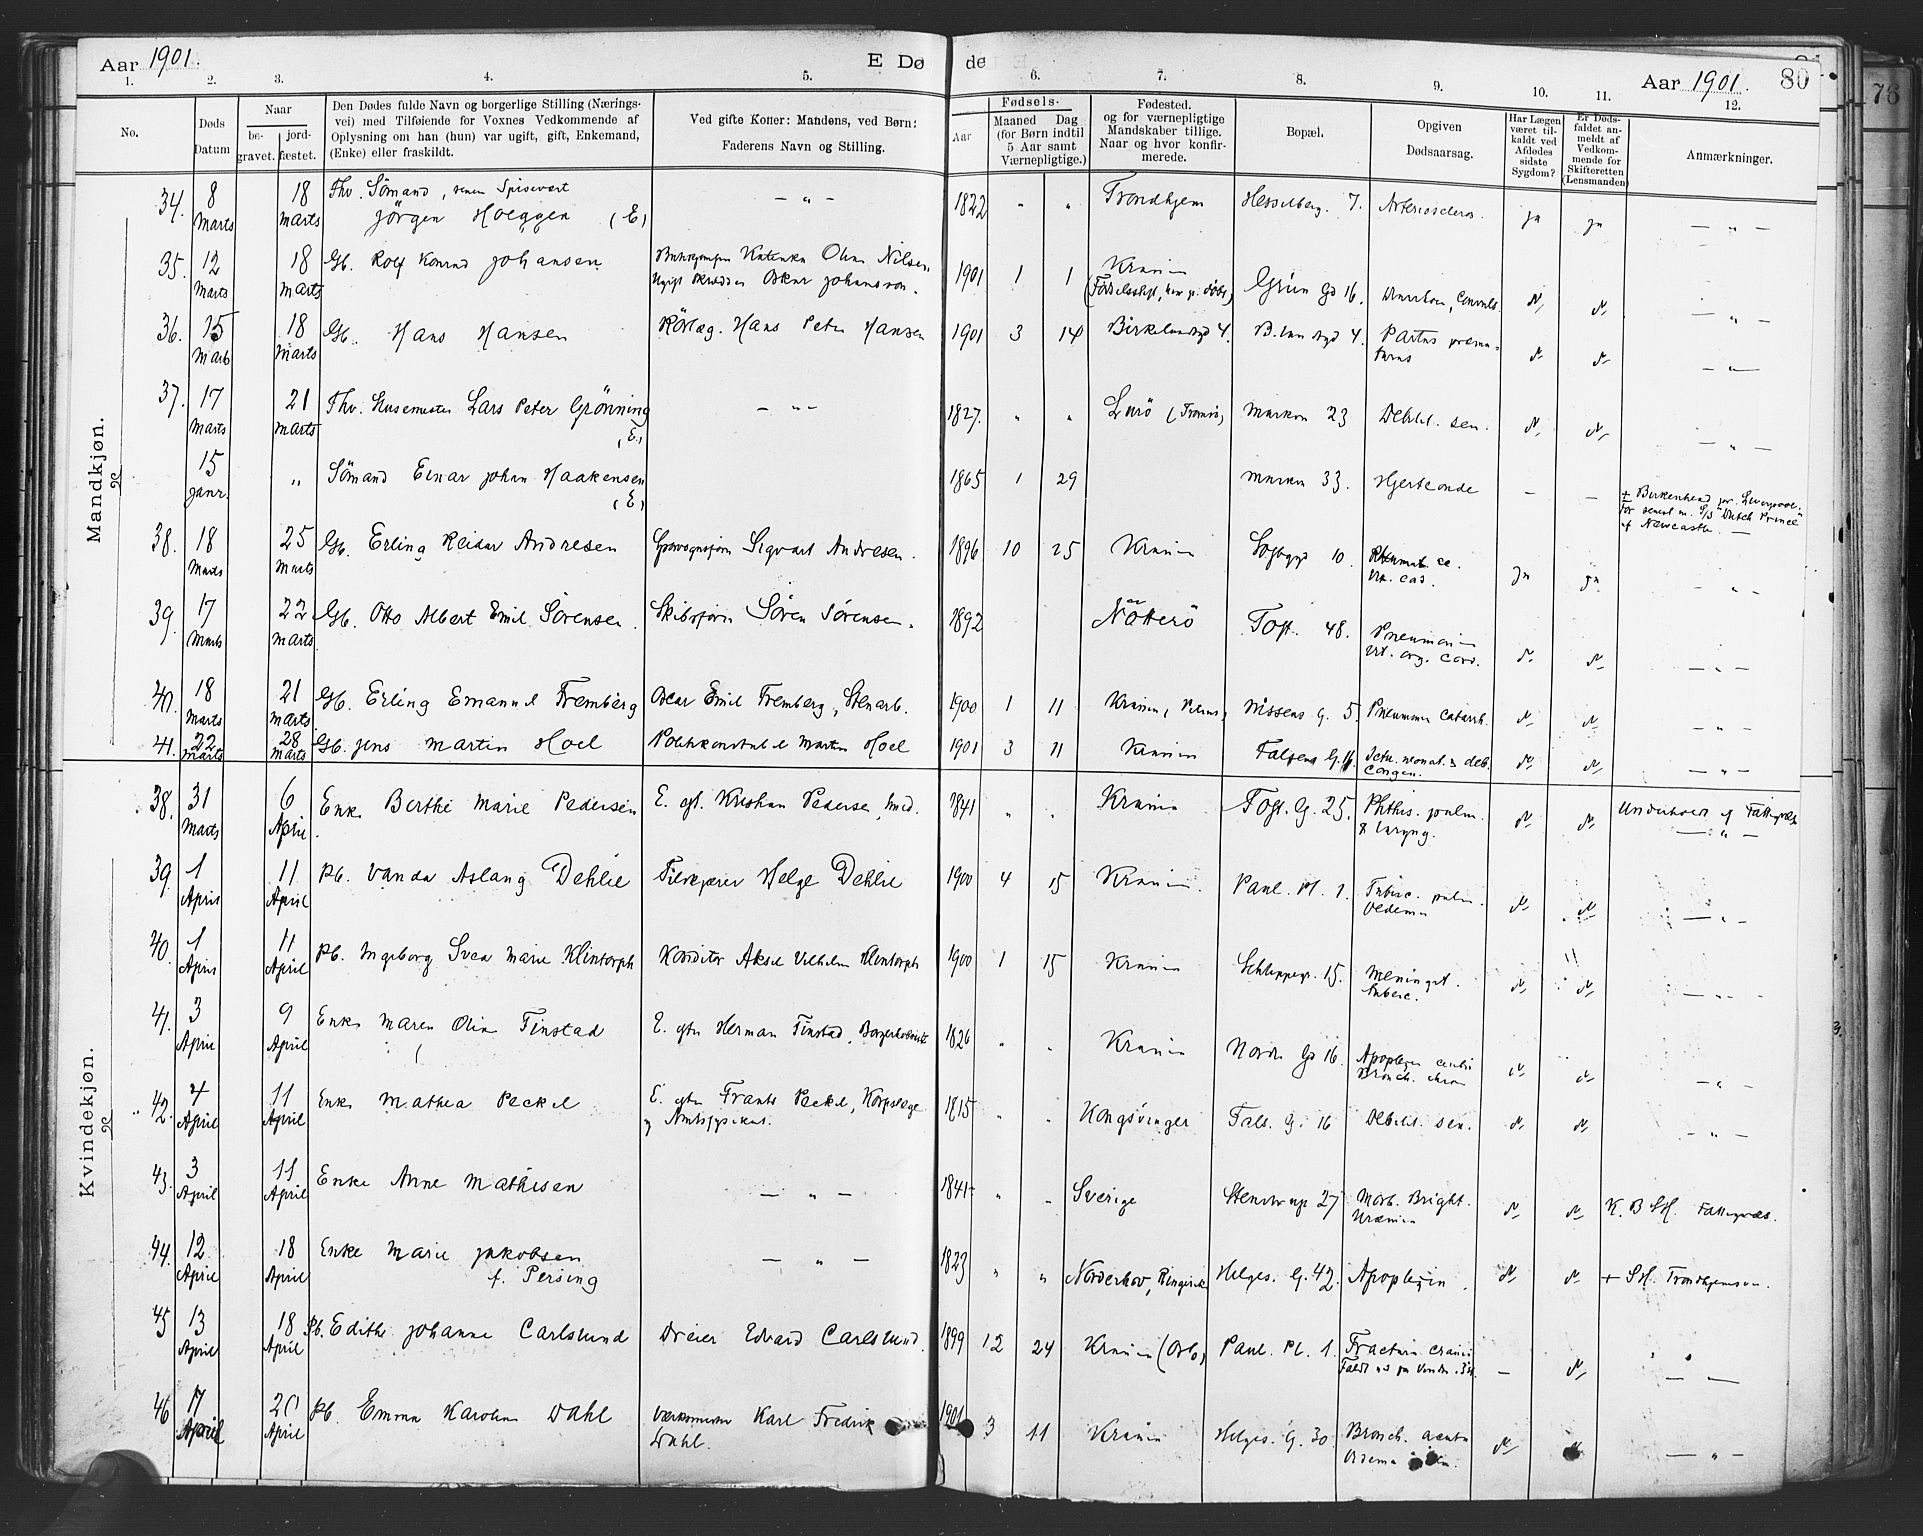 Aar 1901.
E Dø de
Aar 1901. 80
76
1. 2. 3. 4. 5. 6. 7. 8. 9. 10. 11. 12.
No.
Døds Datum
Naar
be-gravet.
jord-fæstet.
Den Dødes fulde Navn og borgerlige Stilling (Nærings-
vei) med Tilføiende for Voxnes Vedkommende af
Oplysning om han (hun) var ugift, gift, Enkemand,
(Enke) eller fraskilt.
Ved gifte Koner: Mandens, ved Børn:
Faderens Navn og Stilling.
Fødsels-
Aar
Maaned Dag
(for Børn indtil
5 Aar samt
Værnepligtige.)
Fødested.
og for værnepligtige
Mandskaber tillige.
Naar og hvor konfir-
merede.
Bopæl.
Opgiven
Dødsaarsag.
Har Lægen
været til-
kaldt ved
Afdødes
sidste
Sygdom?
Er Døds-
faldet an-
meldt af
Vedkom-
mende for
Skifteretten
(Lensmanden)
Anmærkninger.
Mandkjøn.
34. 8 Marts 18 Marts Fhv. Sömand, senere Spisevert Jörgen Hoeggen (E) — " — 1822 " " Trondhjem Hesselberg. 7. Arterioscleros. ja ja — " —
35. 12 Marts 18 Marts Gb. Rolf Konrad Johansen Katinka Oline Nilsen Ugift Skrædder Oskar Johansson. 1901 1 1 Krania Grün Gd 16. N. N. — " —
36. 15 Marts 18 Marts Gb. Hans Hansen Rörlæg. Hans Peter Hansen 1901 3 14 Birkelundgd 4. B.lundgd 4. Partus præma-turus N N — " —
37. 17 Marts 21 Marts Fhv. Husemester Lars Peter Grönning (E) — " — 1827. " " Lurö (Tromsö) Markv 23 Debilit. sen. N. N. — " —
15 Janr. " Sömand Einar Johan Haakensen (E) 1865 1 29 Markv 33. Hjerteonde — — + Birkenhead pr. Liverpool. For senest m. S/S "Dutch Prince" af Newcastle. —
38. 18 Marts 25 Marts Gb. Erling Reidar Andresen Sigvart Andresen. 1896 10 25 Krania Sofbgyd 10. ja ja — " —
39. 17 Marts 22 Marts Gb. Otto Albert Emil Sörensen. Skibsförer Sören Sörensen. 1892 Nötterö Toft. 48. Pneumonia Vit. org. Cord. N. N. — " —
40. 18 Marts 21 Marts Gb. Erling Emanuel Fremberg Oscar Emil Fremberg, Stenarb. 1900 1 11 Krania, Nissens G. 5. Pneumon catarrh. N. N. — " —
41. 22 Marts 28 Marts Gb. Jens Martin Hoel Politikonstabel Martin Hoel 1901 3 11 Krania Falsens G. 16. Icter. neonat. & deb. congen. N. N. — " —
Kvindekjøn.
38. 31 Marts 6 April Enke Berthe Marie Pedersen E. eft. Kristian Pedersen, Smed. 1841 " " Krania Toft. G. 25. Phthis. pulm. & laryng. N. N. Understöttet af Fattigvæs — " —
39. 1 April 11 April Pb. Vanda Aslaug Dehlie Filskjærer Helge Dehlie 1900 4 15 Krania. Paul. Pl. 1. Tuberc. pulm. Oedema N. N. — " —
40. 1 April 11 April Pb. Ingeborg Svea Marie Klintorph Konditor Aksel Vilhelm Klintorph 1900 1 15 Krania Schleppegr. 15. Meningit. tuberc. N. N. — " —
41. 3 April 9 April Enke Maren Olin Finstad E. efter Herman Finstad, 1826 " " Krania Nordr Gd 16. Apoplexia cerebri Bronch. chron N. N. — " —
42. 4 April 11 April Enke Mathea Peckel E. efter Frants Peckel, Korpslæge og Amtsfysikus. 1815 " " Kongsvinger Fals. G. 16 Debilit. sen. N. N. — " —
43. 3 April 11 April Enke Anne Mathisen — " — 1841- " " Sverige Stenstrup 27 Morb. Bright. Uræmia N. N. K. B SH. Fattigvæs.
44. 12 April 18 April Enke Marie Jakobsen f. Persing — " — 1823 " " Norderhov, Ringerike Helges. G. 42. Apoplexia. N. N. + SH. Trondhjemsvn.
45 13 April 18 April Pb. Edith Johanne Carlslund Dreier Edvard Carlslund. 1899 12 24 Krania (Oslo) Paul. Pl. 1. Fractura cranii — N. — " —
46 17 April 20 April Pb. Emma Karoline Dahl Karl Fredrik Dahl. 1901 3 11 Krania Helges. G. 30. Bronch. acuta Oedema N. N. — " —